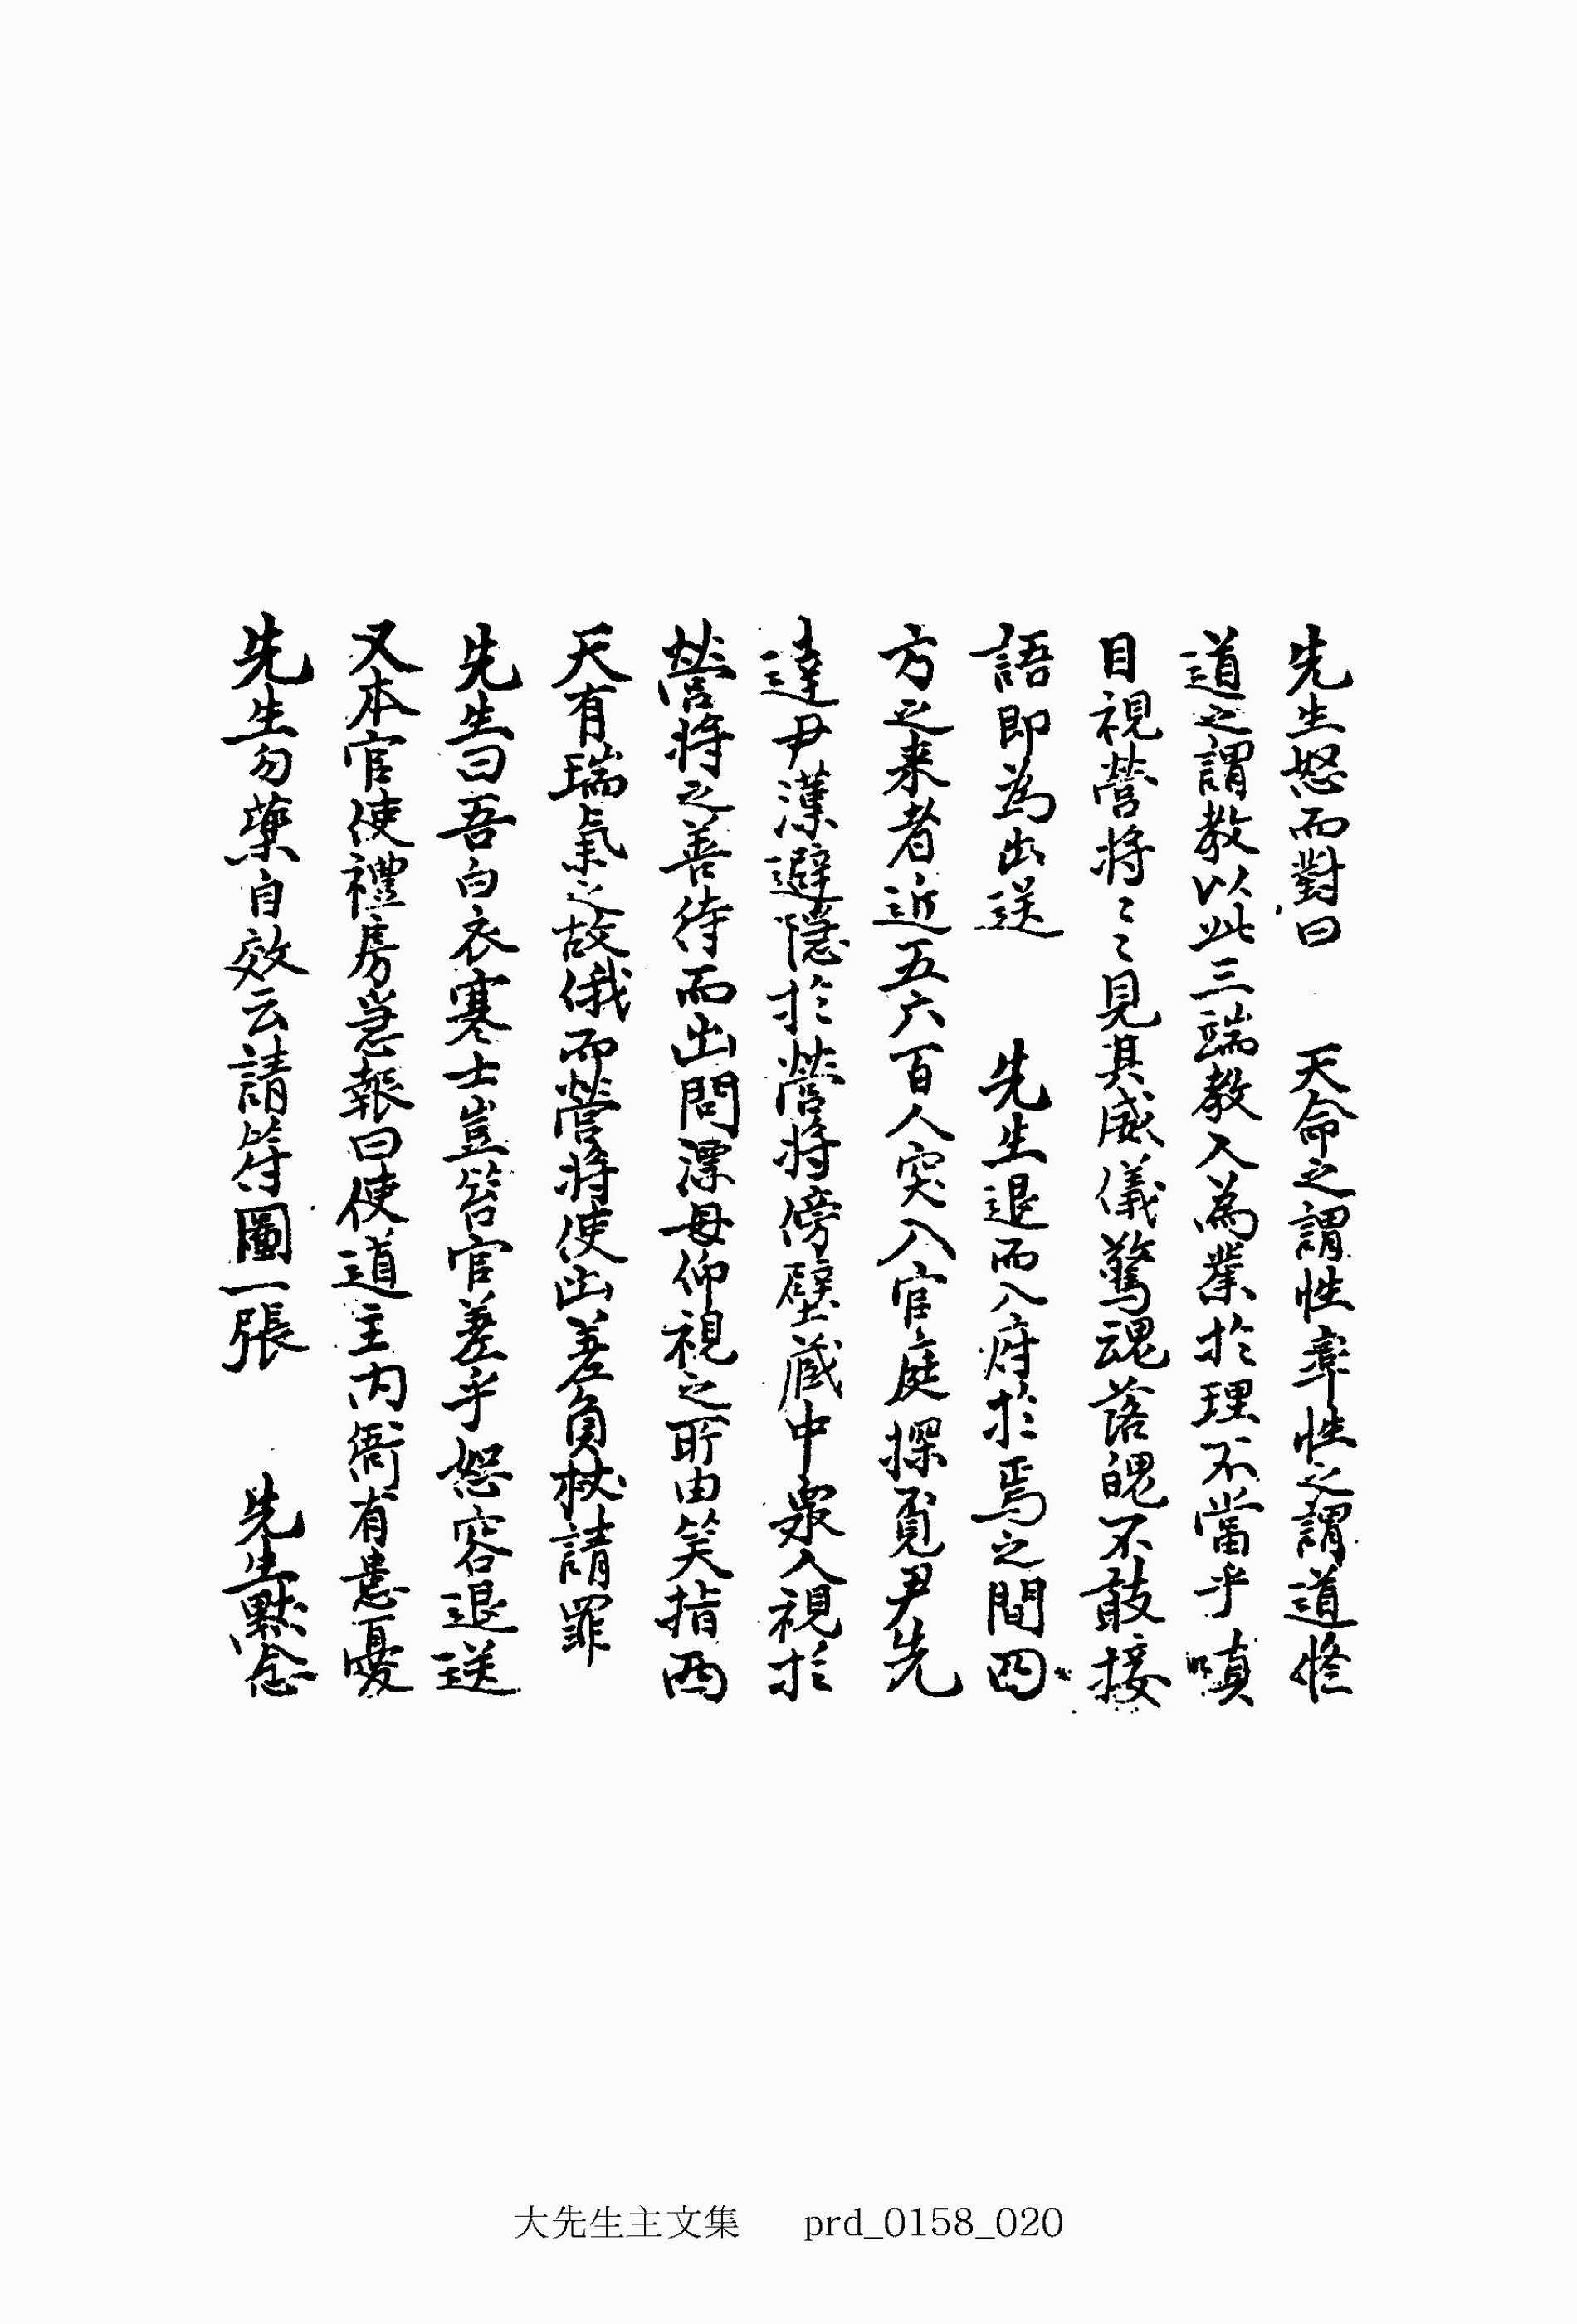 先生怒而對曰 天命之謂性率性之謂道修
道之謂敎以此三端敎人為業於理不當乎嗔
目視營將〻〻見其威儀驚魂落魄不敢接
語即為出送 先生退而入府於焉之間四
方之来者近五六百人突入官庭探覔尹先
達尹漢避隱於營將傍壁藏中衆人視於
營將之善待而出問漂母仰視之所由笑指西
天有瑞氣之故俄而營將使出差負杖請罪
先生曰吾白衣寒士豈笞官差乎恕容退送
又本官使禮房急報曰使道主内衙有患憂
先生勿藥自效云請符圖一張 先生默念
大先生主文集 prd_0158_020